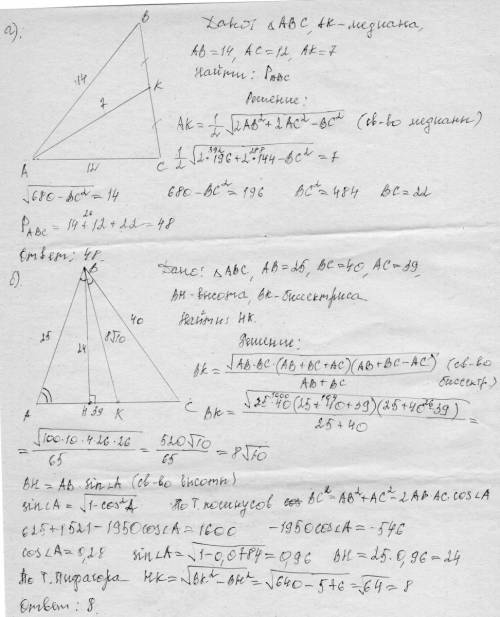 а).
Дано: △ABC, AK-медиана,
AB=14, AC=12, AK=7
Найти: P_ABC
Решение:
AK=1/2√(2AB²+2AC²-BC²) (св-во медианы)
1/2√(2·196+2·144-BC²)=7
392 288
B
14
7
K
A
12
C
√(680-BC²)=14 680-BC²=196 BC²=484 BC=22
26
P_ABC=14+12+22=48
Ответ: 48.
б).
Дано: △ABC, AB=25, BC=40, AC=39,
BH-высота, BK-биссектриса
Найти: HK.
Решение:
BK=√(AB·BC·(AB+BC+AC)(AB+BC-AC))/(AB+BC) (св-во биссектр)
BK=√(25·40(25+40+39)(25+40-39))/(25+40)=
1000 104 26
B
25
24
8√10
40
A
H
39
K
C
=√(100·10·4·26·26)/65=520√10/65=8√10
BH=AB·sin∠A (св-во высоты)
sin∠A=√(1-cos²A) По Т. косинусов BC²=AB²+AC²-2AB·AC·cos∠A
625+1521-1950cos∠A=1600 -1950cos∠A=-546
cos∠A=0,28 sin∠A=√(1-0,0784)=0,96 BH=25·0,96=24
По Т. Пифагора HK=√(BK²-BH²)=√(640-576)=√64=8
Ответ: 8.